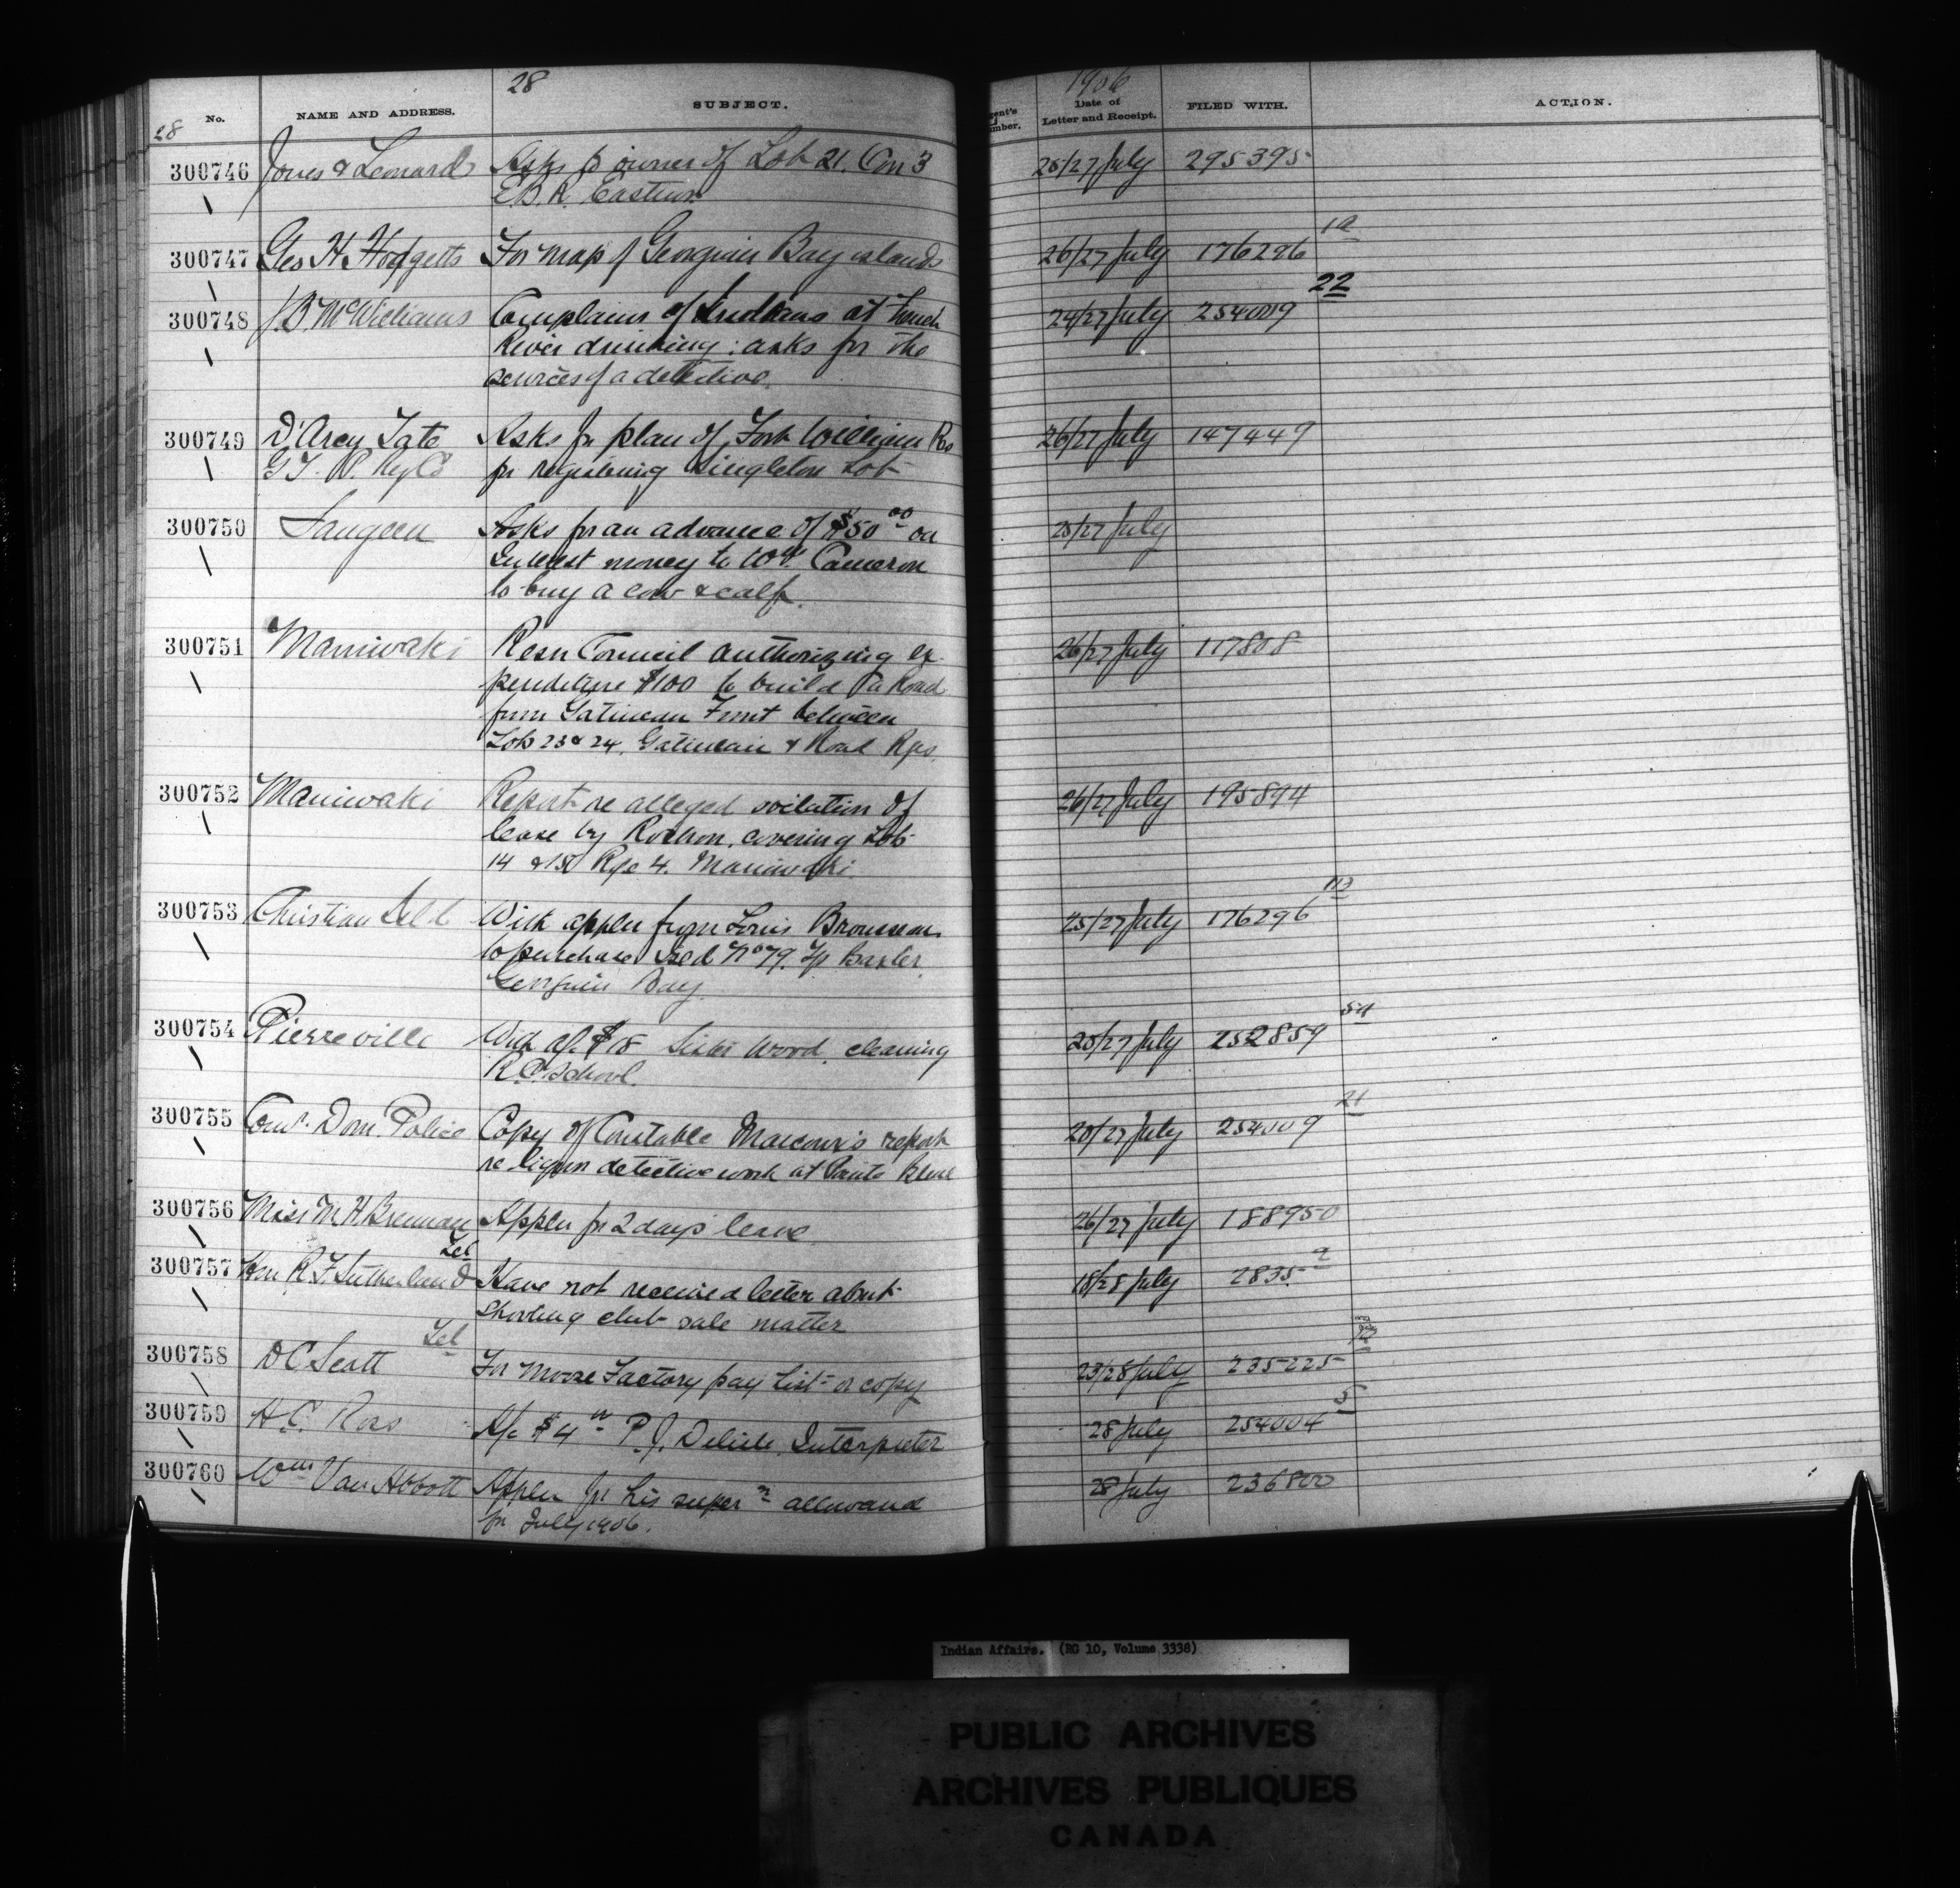 28
1906
No. NAME AND ADDRESS. SUBJECT. Date of Letter and Receipt. FILED WITH. ACTION.
28
300746 Jones & Leonard Asks owner of Lot 21. Con 3 26/27 July 295395
E.B.R. Eastnor
300747 Geo H. Hodgetts For map of Georgian Bay islands 26/27 July 176296 1a
300748 J B McWilliams Complains of Indians at French 24/27 July 254009 22
River drinking; asks for the
services of a detective.
300749 D'Arcy Tate Asks for plan of Fort William Res 26/27 July 147449
G.T.P. Ry Co for registering Singleton Lot
300750 Saugeen Asks for an advance of $50 00 on 25/27 July
Interest money to Wm Cameron
to buy a cow & calf.
300751 Maniwaki Resn Council authorizing ex- 26/27 July 117808
penditure $100 to build a Road
from Gatineau Front between
Lots 23 & 24, Gatineau & Road Rgs.
300752 Maniwaki Report re alleged violation of 26/27 July 195894
lease by Rochon, covering Lots
14 & 15 Rge 4. Maniwaki.
300753 Christian Isl d With appln from Louis Brousseau 25/27 July 176296 113
to purchase Isd No 79. Tp Baxter,
Georgian Bay
300754 Pierreville With a/c $18 wood, cleaning 25/27 July 252859 54
R.C. School.
300755 Comr. Dom. Police Copy of Constable report 20/27 July 254009 21
re liquor detective work at Pointe Bleue
300756 Miss M. H Brennan Appln for 2 days leave 26/27 July 188950
300757 Hon R. F. Sutherland Tel Have not received letter about 18/28 July 2835 9
Shooting club sale matter
300758 D C Scott Tel For Moose Factory pay list or copy 23/28 July 235225
300759 H. C. Ross A/c $4 00 P. J. Delisle, Interpreter 28 July 254004 5
300760 Wm Van Abbott Appln for his super n allowance 28 July 236800
for July 1906.
Indian Affairs. (RG 10, Volume 3338)
PUBLIC ARCHIVES
ARCHIVES PUBLIQUES
CANADA